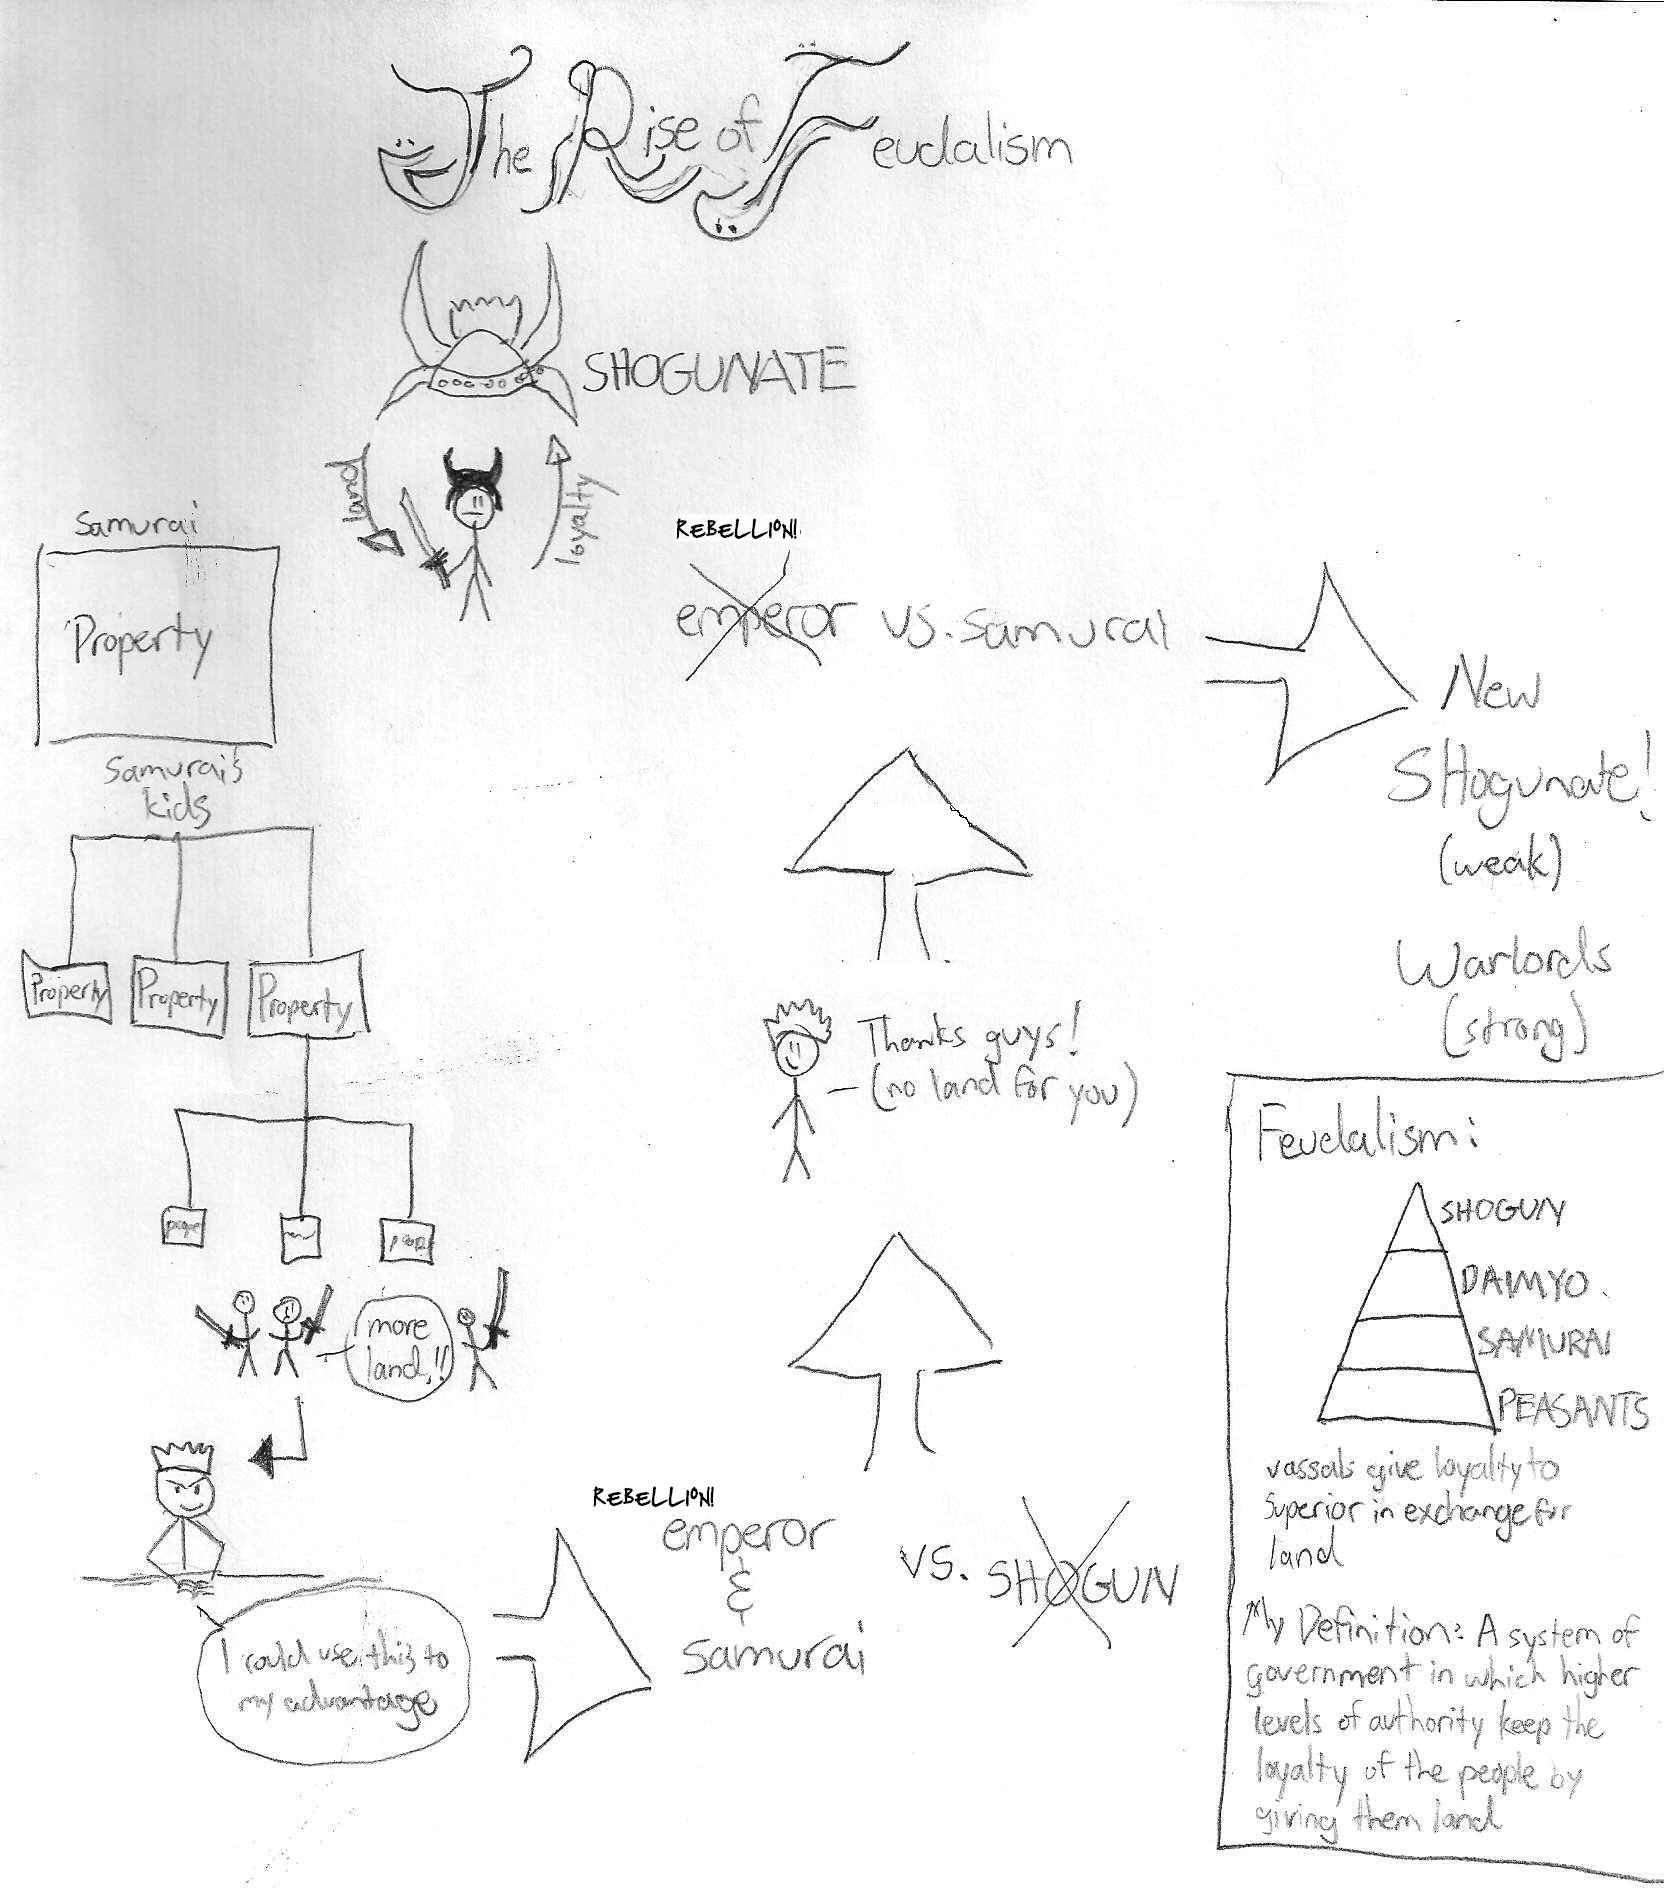 The Rise of Feudalism
SHOGUNATE
land
loyalty
Samurai
Property
Samurai's
kids
Property
Property
Property
more
land!!
I could use this to
my advantage
REBELLION!
emperor
&
samurai
vs. SHOGUN
Thanks guys!
(no land for you)
REBELLION!
emperor vs. samurai
New
SHogunate!
(weak)
Warlords
(strong)
Feudalism:
SHOGUN
DAIMYO
SAMURAI
PEASANTS
vassals give loyalty to
superior in exchange for
land
My Definition: A system of
government in which higher
levels of authority keep the
loyalty of the people by
giving them land